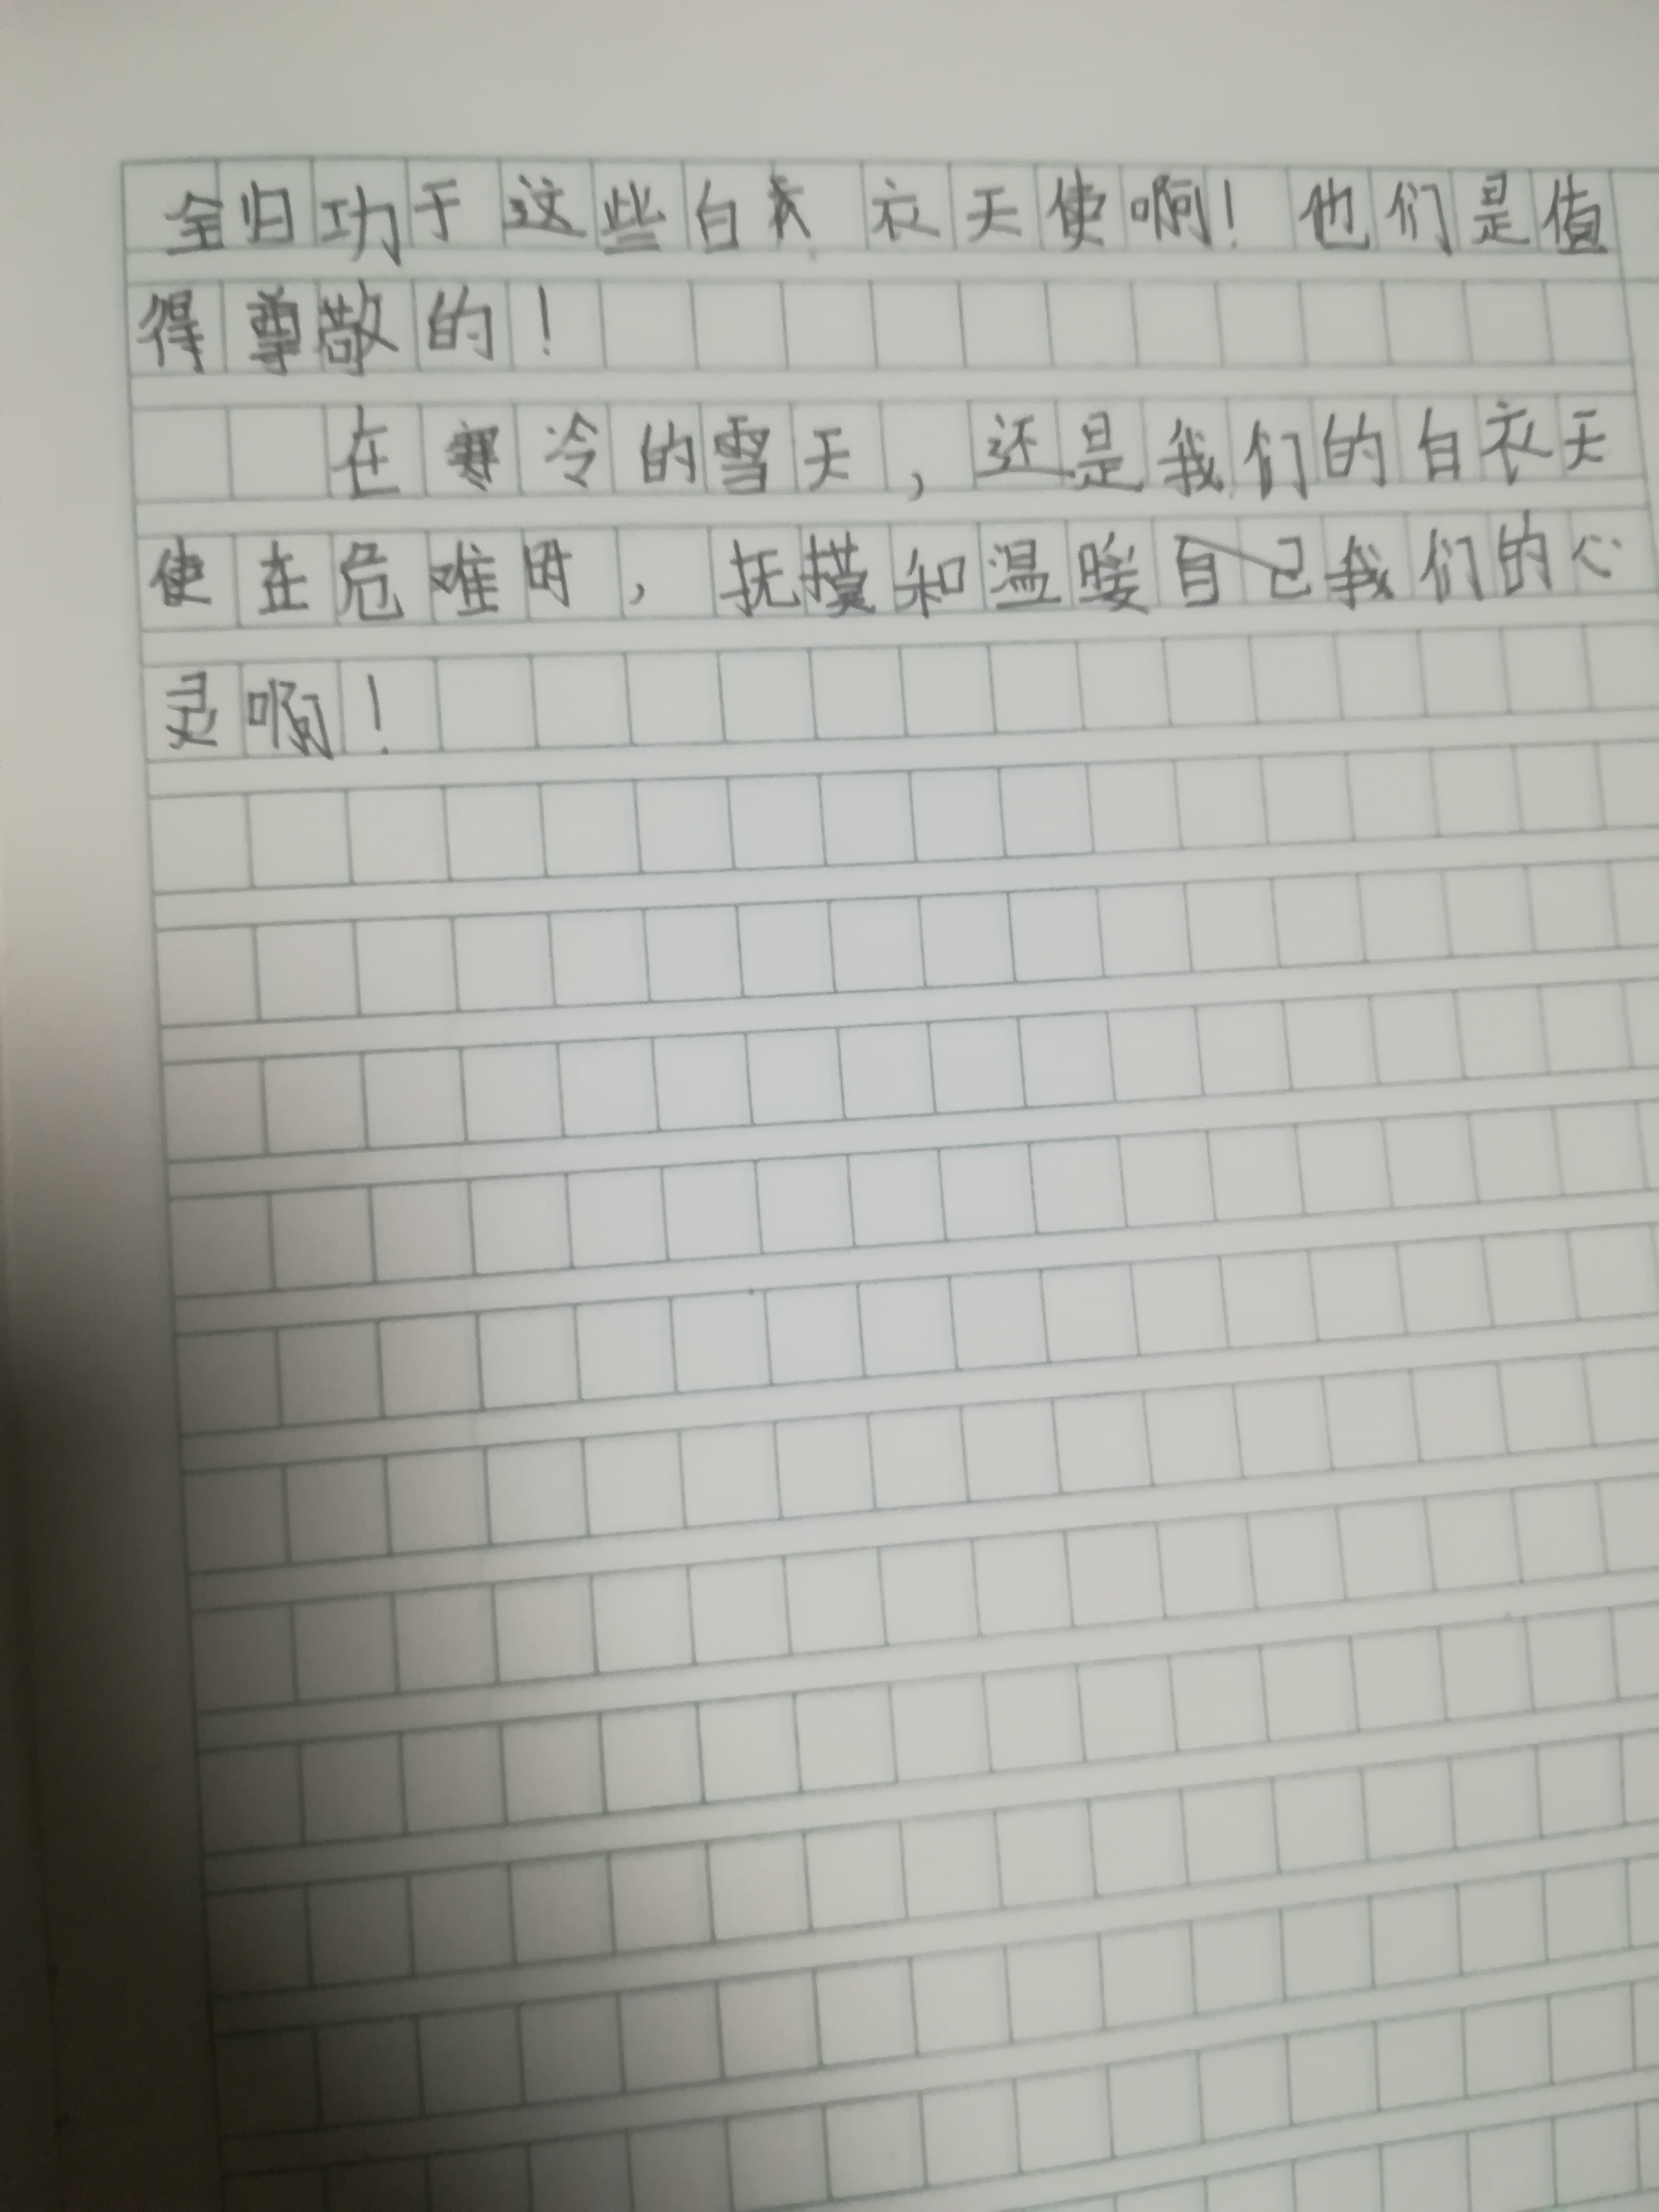 全归功于这些白衣天使啊！他们是值
得尊敬的！
在寒冷的雪天，还是我们的白衣天
使在危难时，抚摸和温暖我们的心
灵啊！